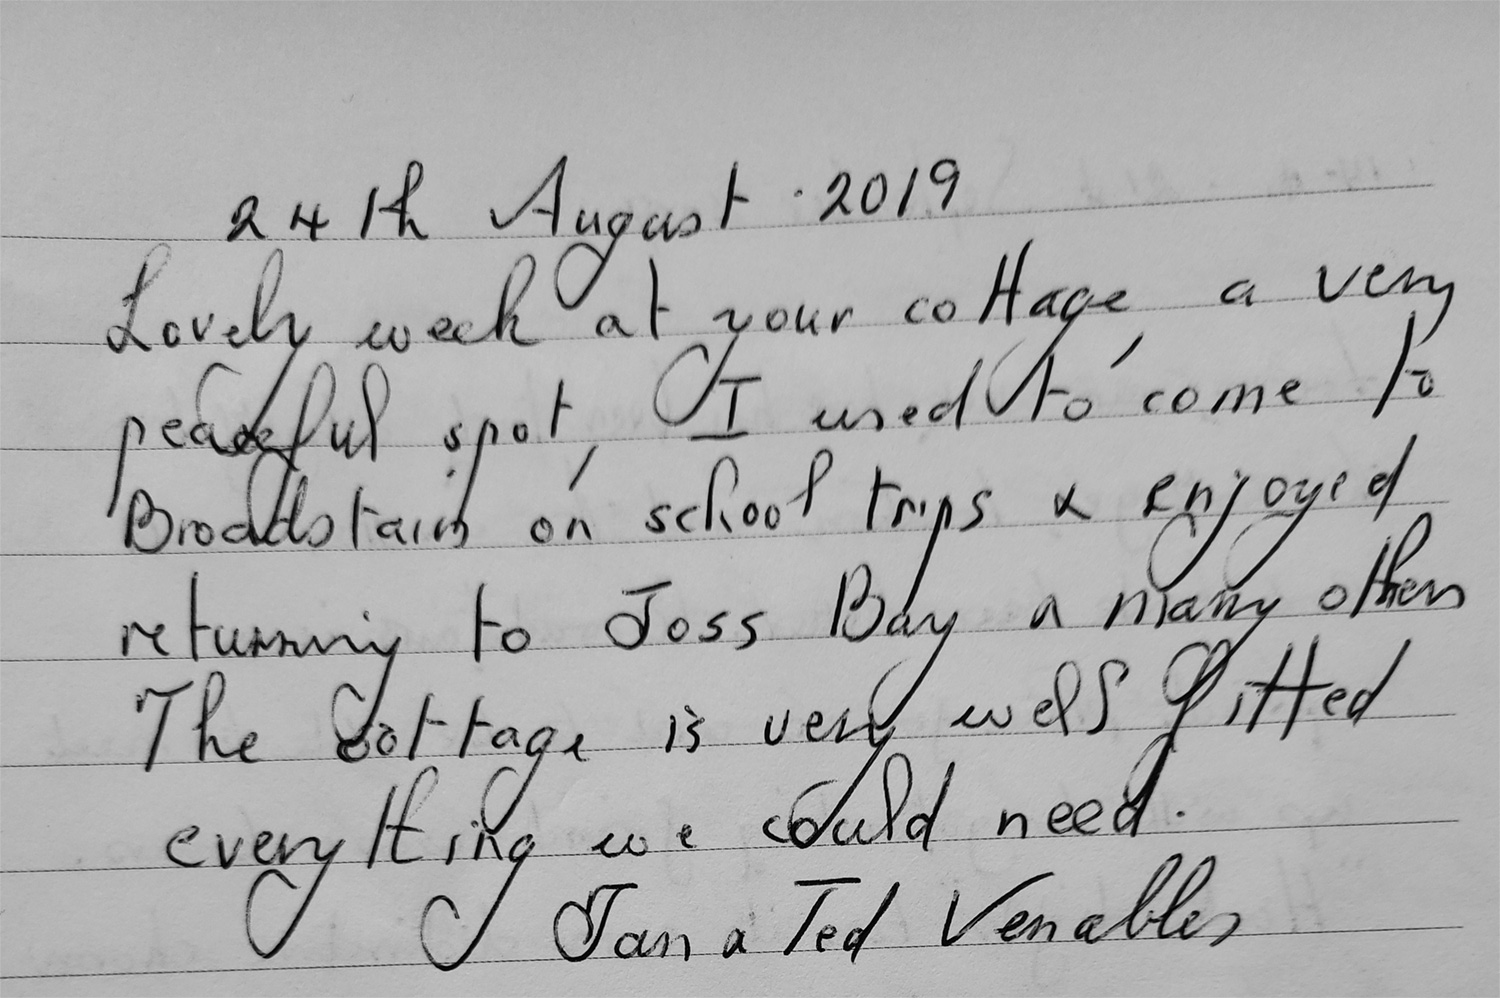 24th August . 2019
Lovely week at your cottage, a very
peaceful spot, I used to come to
Broadstairs on school trips & enjoyed
returning to Joss Bay & many others
The Cottage is very well fitted
everything we could need.
Jan & Ted Venables